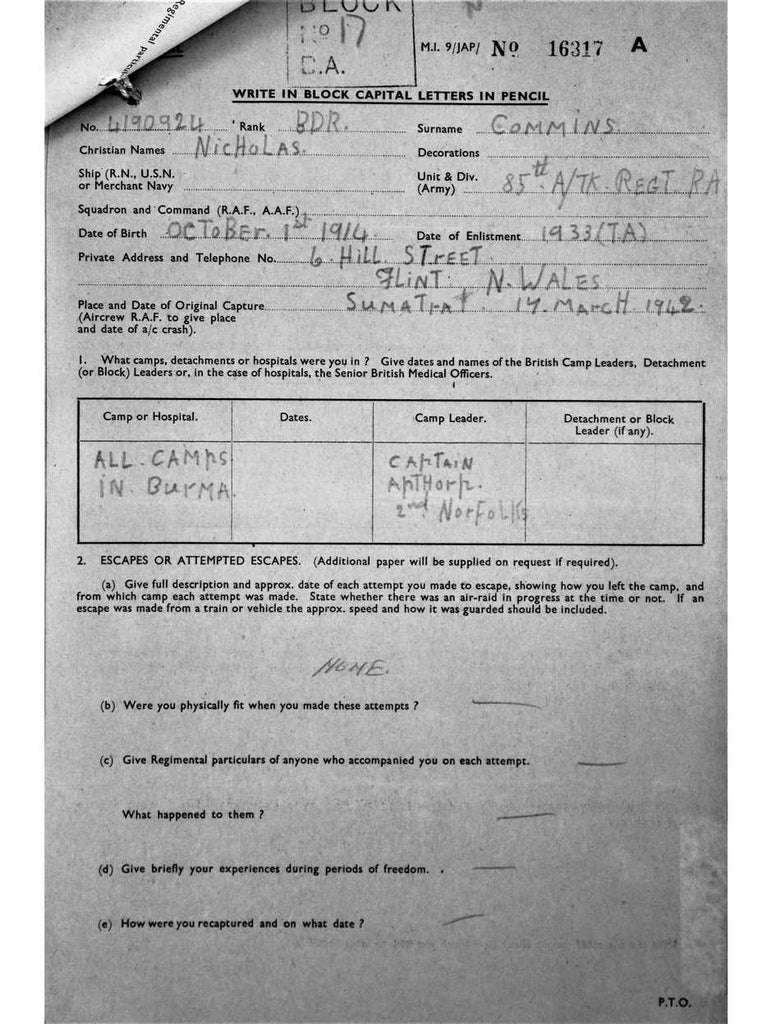 Regimental partic
BLOCK
No 17
B.A.
M.I. 9/JAP/ No 16317 A
WRITE IN BLOCK CAPITAL LETTERS IN PENCIL
No. 4190924 Rank BDR. Surname COMMINS.
Christian Names NICHOLAS. Decorations
Ship (R.N., U.S.N. or Merchant Navy
Unit & Div. (Army) 85th A/TK. REGT. RA
Squadron and Command (R.A.F., A.A.F.)
Date of Birth OCTOBER. 1st 1914. Date of Enlistment 1933 (TA)
Private Address and Telephone No. 6. HILL STREET.
FLINT. N. WALES
Place and Date of Original Capture SUMATRA. 17. MARCH 1942.
(Aircrew R.A.F. to give place
and date of a/c crash).
1. What camps, detachments or hospitals were you in ? Give dates and names of the British Camp Leaders, Detachment
(or Block) Leaders or, in the case of hospitals, the Senior British Medical Officers.
Camp or Hospital. Dates. Camp Leader. Detachment or Block Leader (if any).
ALL. CAMPS CAPTAIN
IN BURMA. APTHORP.
2nd NORFOLKS
2. ESCAPES OR ATTEMPTED ESCAPES. (Additional paper will be supplied on request if required).
(a) Give full description and approx. date of each attempt you made to escape, showing how you left the camp, and
from which camp each attempt was made. State whether there was an air-raid in progress at the time or not. If an
escape was made from a train or vehicle the approx. speed and how it was guarded should be included.
NONE.
(b) Were you physically fit when you made these attempts ? —
(c) Give Regimental particulars of anyone who accompanied you on each attempt. —
What happened to them ? —
(d) Give briefly your experiences during periods of freedom. —
(e) How were you recaptured and on what date ? —
P.T.O.